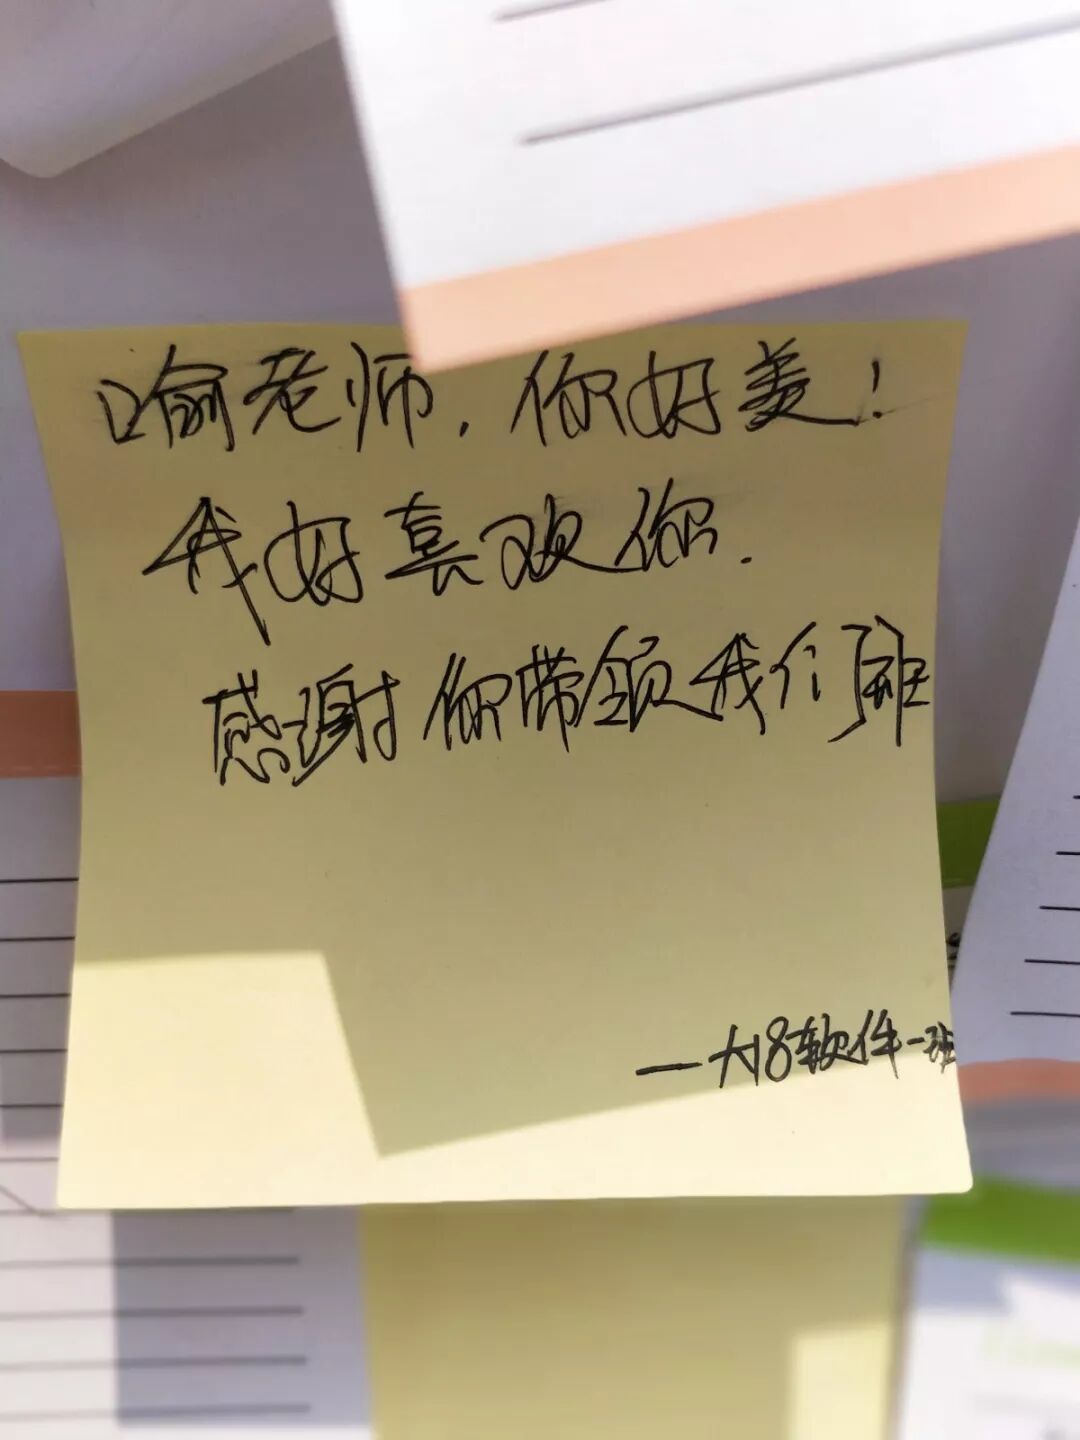 喻老师，你好美！
我好喜欢你.
感谢你带领我们班
—大18软件一班